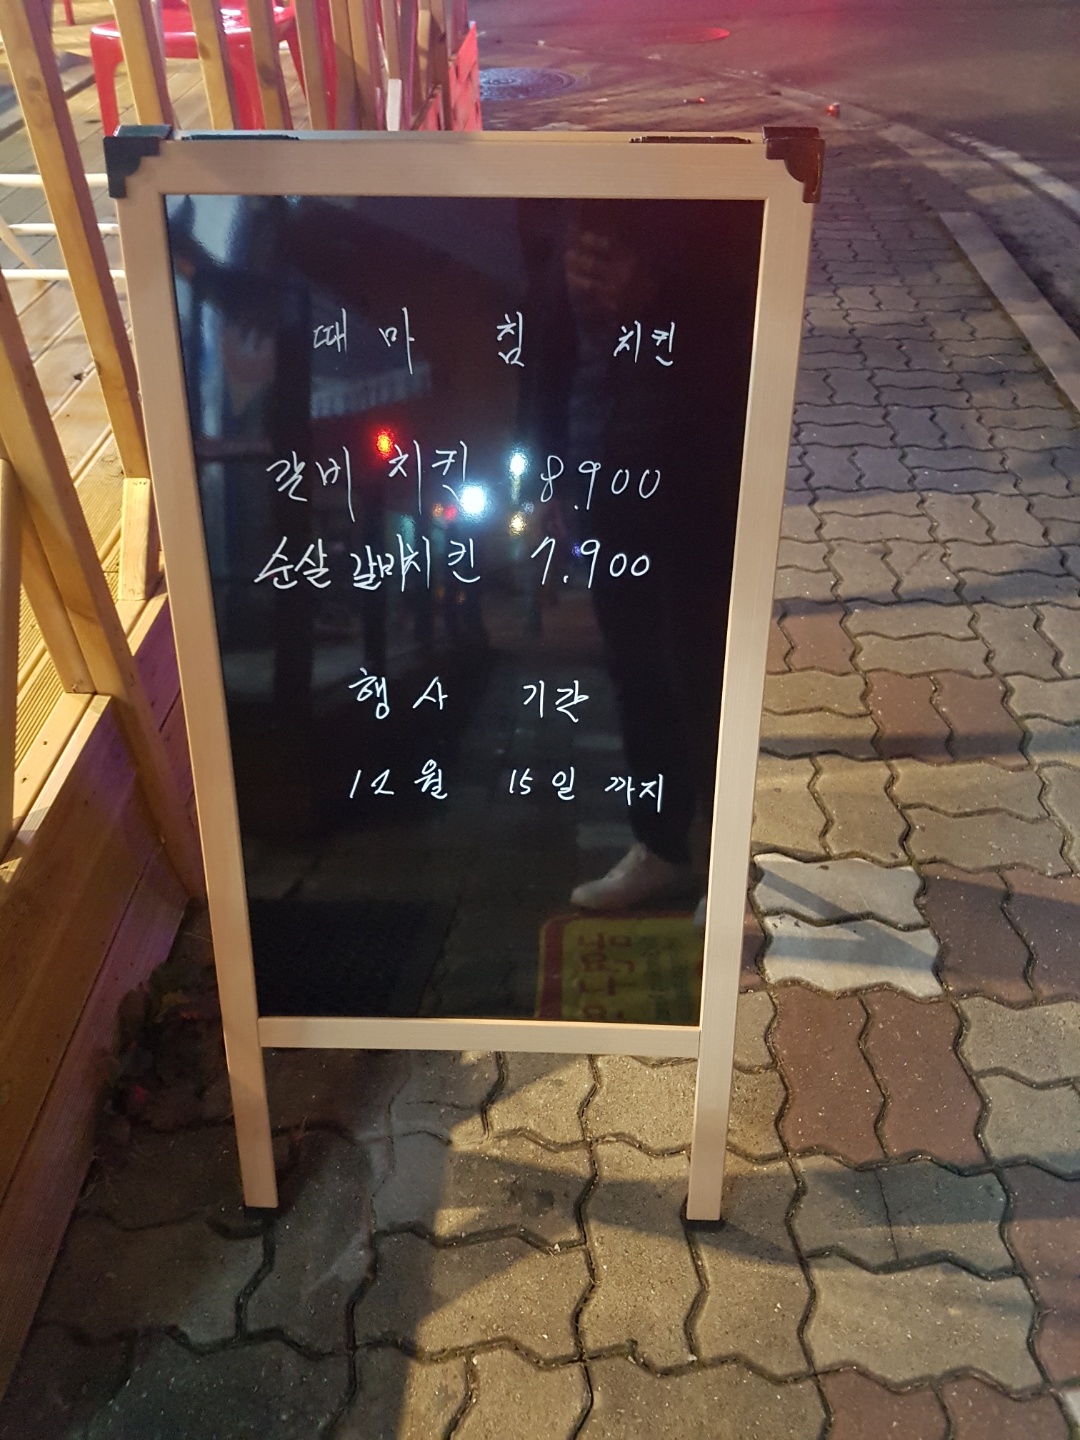 때마침 치킨
갈비 치킨 8.900
순살 갈비치킨 7.900
행사 기간
12월 15일 까지